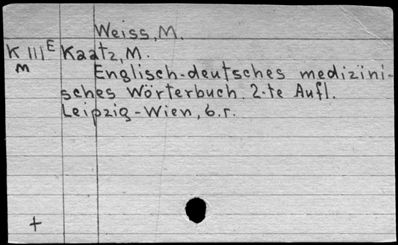 Weiss, M.
K III E Kaatz, M.
M Englisch-deutsches medizini-
sches Wörterbuch. 2-te Aufl.
Leipzig-Wien, b.r.
+